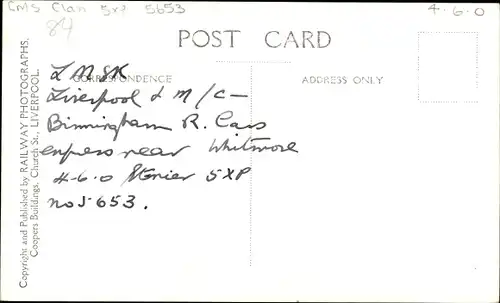 LMS Clan 5XP 5653
4-6-0
84
POST CARD
CORRESPONDENCE
ADDRESS ONLY
LMSR
Liverpool & M/C-
Birmingham R. Cars
express near Whitmore
4-6-0 Stanier 5XP
no 5653.
Copyright and Published by RAILWAY PHOTOGRAPHS,
Coopers Buildings, Church St., LIVERPOOL.